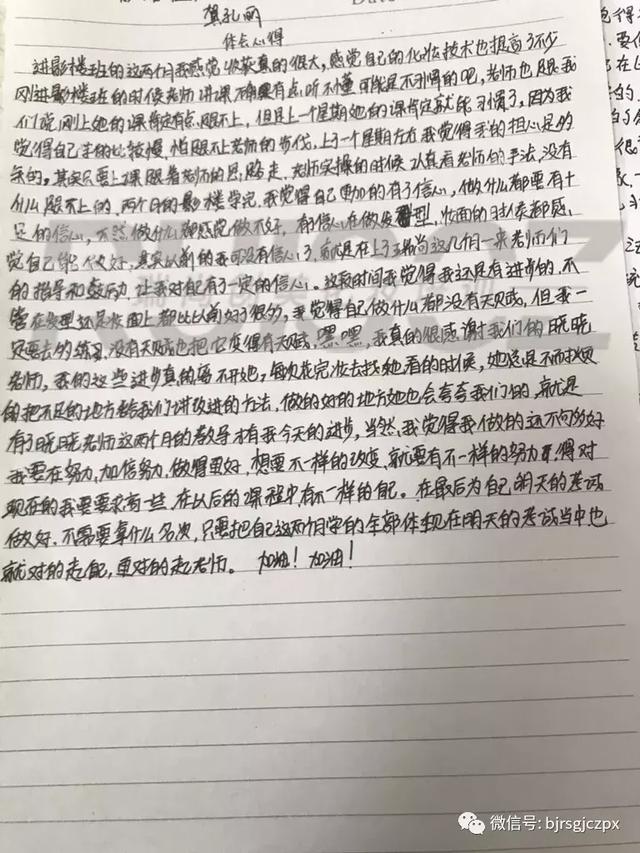 龚孔丽
体会心得
进影楼班的这两个月我感觉收获真的很大,感觉自己的化妆技术也提高了不少
刚进影楼班的时候老师讲课有点听不懂可能是不习惯的吧,老师也跟我
们说,刚上她的课肯定有点跟不上,但是上一个星期她的课肯定就能习惯了,因为我
觉得自己的比较慢,怕跟不上老师的步伐,上了一个星期左右我觉得我的担心是多
余的。其实只要上课跟着老师的思路走,老师实操的时候认真看老师的手法,没有
什么跟不上的,两个月的影楼学完,我觉得自己更加的有了信心,做什么都要有十
足的信心,不然做什么都感觉做不好,有信心在做发型,妆面的时候都感
觉自己能做好,其实以前的我可没有信心了,就是在上了瑞尚这几个月来老师们
的指导和鼓励,让我对自己有了一定的信心。这段时间我觉得我还是有进步的,不
管在发型还是妆面上都比以前好了很多,我觉得自己做什么都没有天赋,但我一
定要去多练习,没有天赋也把它变得有天赋,嘿嘿,我真的很感谢我们的晓晓
老师,我的这些进步真的离不开她,每次化完妆去找她看的时候,她总是不耐烦
的把不足的地方给我们讲改进的方法,做的好的地方她也会夸夸我们的,就是
有了晓晓老师这两个月的教导才有我今天的进步,当然,我觉得我做的还不够多好
我要在努力,加倍努力,做得更好,想要不一样的改变,就要有不一样的努力,得对
现在的我要求高一些,在以后的课程中有不一样的自己。在最后为自己明天的考试
做好,不需要拿什么名次,只要把自己这两个月学的全部体现在明天的考试当中也
就对的起自己,更对的起老师。加油!加油!
微信号: bjrsgjczpx